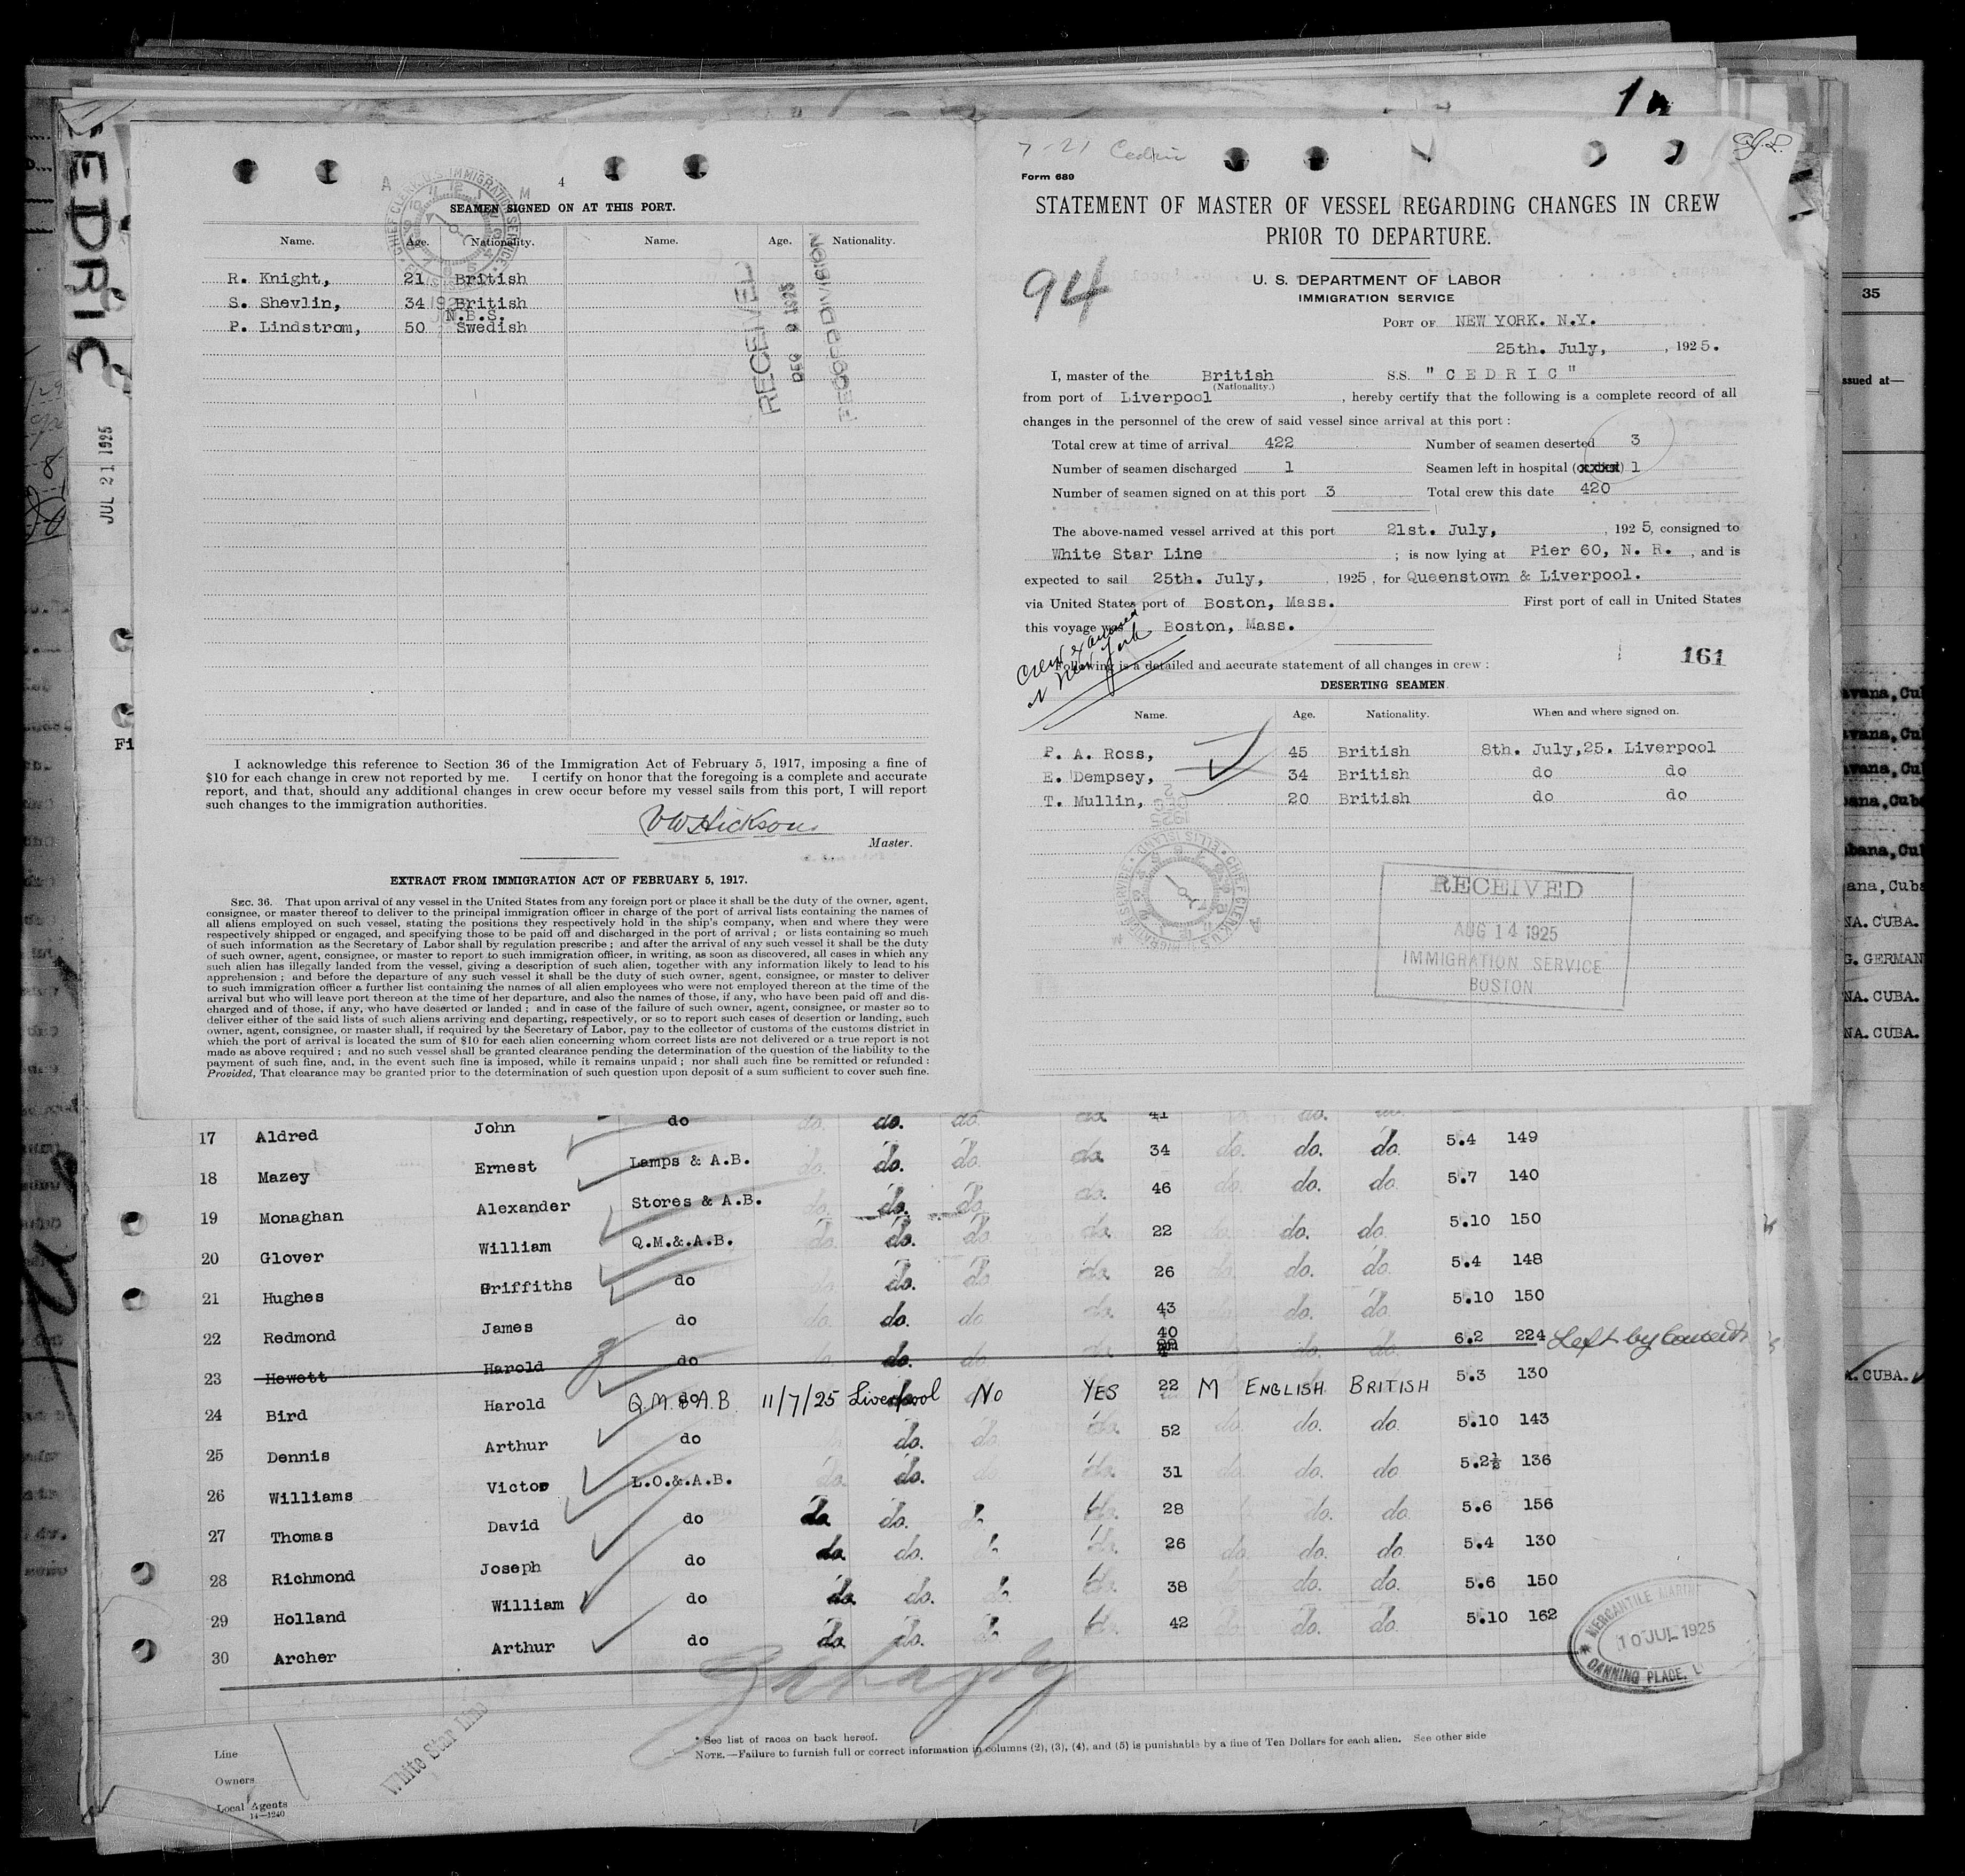 CEDRIC
JUL 21 1925
4
SEAMEN SIGNED ON AT THIS PORT.
Name. Age. Nationality. Name. Age. Nationality.
R. Knight, 21 British
S. Shevlin, 34 British
N.B.S.
P. Lindstrom, 50 Swedish
RECEIVED
DEC 9 1925
RECORD DIVISION
I acknowledge this reference to Section 36 of the Immigration Act of February 5, 1917, imposing a fine of
$10 for each change in crew not reported by me. I certify on honor that the foregoing is a complete and accurate
report, and that, should any additional changes in crew occur before my vessel sails from this port, I will report
such changes to the immigration authorities.
VW Hickson
Master.
EXTRACT FROM IMMIGRATION ACT OF FEBRUARY 5, 1917.
SEC. 36. That upon arrival of any vessel in the United States from any foreign port or place it shall be the duty of the owner, agent,
consignee, or master thereof to deliver to the principal immigration officer in charge of the port of arrival lists containing the names of
all aliens employed on such vessel, stating the positions they respectively hold in the ship's company, when and where they were
respectively shipped or engaged, and specifying those to be paid off and discharged in the port of arrival; or lists containing so much
of such information as the Secretary of Labor shall by regulation prescribe; and after the arrival of any such vessel it shall be the duty
of such owner, agent, consignee, or master to report to such immigration officer, in writing, as soon as discovered, all cases in which any
such alien has illegally landed from the vessel, giving a description of such alien, together with any information likely to lead to his
apprehension; and before the departure of any such vessel it shall be the duty of such owner, agent, consignee, or master to deliver
to such immigration officer a further list containing the names of all alien employees who were not employed thereon at the time of the
arrival but who will leave port thereon at the time of her departure, and also the names of those, if any, who have been paid off and dis-
charged and of those, if any, who have deserted or landed; and in case of the failure of such owner, agent, consignee, or master so to
deliver either of the said lists of such aliens arriving and departing, respectively, or so to report such cases of desertion or landing, such
owner, agent, consignee, or master shall, if required by the Secretary of Labor, pay to the collector of customs of the customs district in
which the port of arrival is located the sum of $10 for each alien concerning whom correct lists are not delivered or a true report is not
made as above required; and no such vessel shall be granted clearance pending the determination of the question of the liability to the
payment of such fine, and, in the event such fine is imposed, while it remains unpaid; nor shall such fine be remitted or refunded:
Provided, That clearance may be granted prior to the determination of such question upon deposit of a sum sufficient to cover such fine.
7-21 Cedric
Form 689
STATEMENT OF MASTER OF VESSEL REGARDING CHANGES IN CREW
PRIOR TO DEPARTURE.
94
U. S. DEPARTMENT OF LABOR
IMMIGRATION SERVICE
PORT OF NEW YORK. N.Y.
25th. July, , 1925.
I, master of the British S.S. "CEDRIC"
(Nationality.)
from port of Liverpool , hereby certify that the following is a complete record of all
changes in the personnel of the crew of said vessel since arrival at this port:
Total crew at time of arrival 422 Number of seamen deserted 3
Number of seamen discharged 1 Seamen left in hospital (xxxxx) 1
Number of seamen signed on at this port 3 Total crew this date 420
The above-named vessel arrived at this port 21st. July, , 1925, consigned to
White Star Line ; is now lying at Pier 60, N. R. , and is
expected to sail 25th. July, , 1925, for Queenstown & Liverpool.
via United States port of Boston, Mass. First port of call in United States
this voyage was Boston, Mass.
Crew examined
at New York
161
Following is a detailed and accurate statement of all changes in crew:
DESERTING SEAMEN
Name. Age. Nationality. When and where signed on.
P. A. Ross, 45 British 8th. July,25. Liverpool
E. Dempsey, 34 British do do
T. Mullin, 20 British do do
RECEIVED
AUG 14 1925
IMMIGRATION SERVICE
BOSTON
35
ssued at—
NA. CUBA.
G. GERMAN
NA. CUBA.
NA. CUBA.
CUBA.
17 Aldred John do do. do. do. do. 41 do. do.
18 Mazey Ernest Lamps & A.B. do. do. do. do. 34 do. do. do. 5.4 149
19 Monaghan Alexander Stores & A.B. do. do. do. do. 46 do. do. do. 5.7 140
20 Glover William Q.M.&.A.B. do. do. do. do. 22 do. do. do. 5.10 150
21 Hughes Griffiths do do. do. do. 26 do. do. do. 5.4 148
22 Redmond James do do. do. do. do. 43 do. do. do. 5.10 150
23 Hewett Harold do do. do. do. do. 40 do. do. do. 6.2 224 Left by Consent
24 Bird Harold Q.M. & A.B. 11/7/25 Liverpool No YES 22 M ENGLISH BRITISH 5.3 130
25 Dennis Arthur do do. do. do. 52 do. do. do. 5.10 143
26 Williams Victor L.O.&.A.B. do. do. do. do. 31 do. do. do 5.2½ 136
27 Thomas David do do. do. do. do. 28 do. do. do. 5.6 156
28 Richmond Joseph do do. do. do. do. 26 do. do. do. 5.4 130
29 Holland William do do. do. do. do. 38 do. do. do. 5.6 150
30 Archer Arthur do do. do. do. do. 42 do. do. do. 5.10 162
MERCANTILE MARINE
10 JUL 1925
CANNING PLACE, L
White Star Line
Line
Owners
Local Agents
14—1240
* See list of races on back hereof.
NOTE.—Failure to furnish full or correct information in columns (2), (3), (4), and (5) is punishable by a fine of Ten Dollars for each alien. See other side